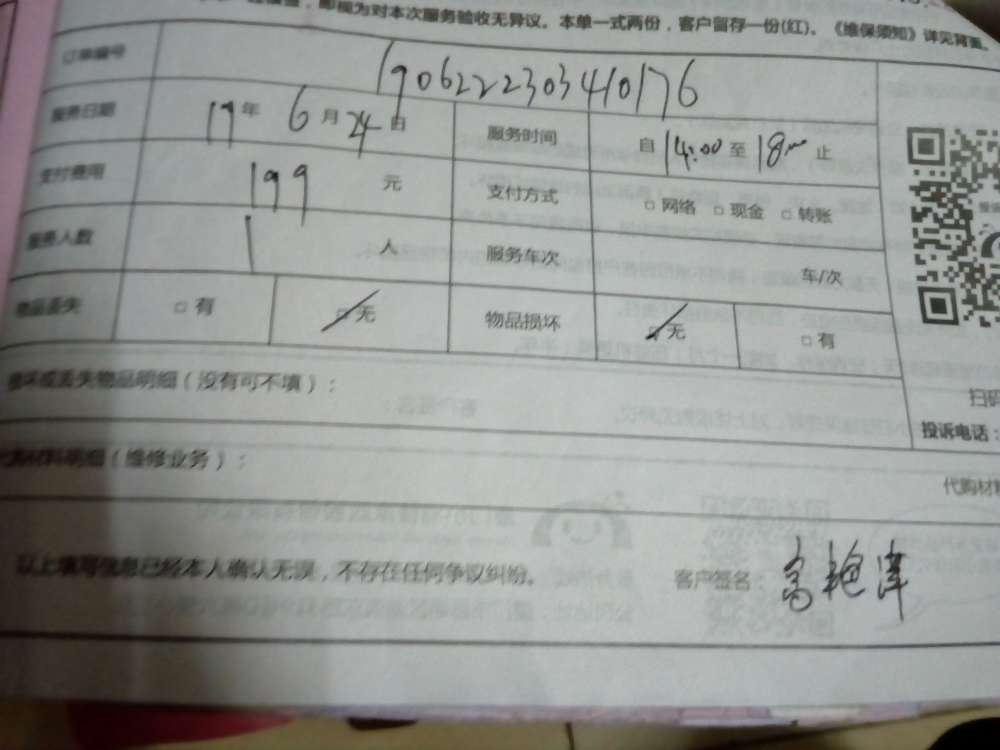 即视为对本次服务验收无异议。本单一式两份，客户留存一份(红)。《维保须知》详见背面。
订单编号 190622230340176
服务日期 19年 6月 24日 服务时间 自 14:00 至 18:00 止
支付费用 199 元 支付方式 □ 网络 □ 现金 □ 转账
服务人数 1 人 服务车次 车/次
物品丢失 □ 有 □ 无 物品损坏 □ 无 □ 有
损坏或丢失物品明细（没有可不填）：
扫码
投诉电话：
材料明细（维修业务）：
代购材料
以上填写信息已经本人确认无误，不存在任何争议纠纷。 客户签名：高艳萍